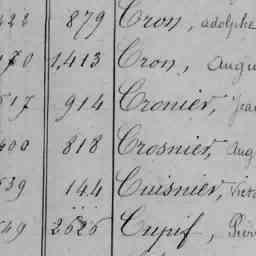 879 Cron, adolphe
1,413 Cron, Augu
517 914 Cronier, Jea
400 818 Crosnier, Aug
539 144 Cuisnier, Victo
549 2526 Cupif, Pierr